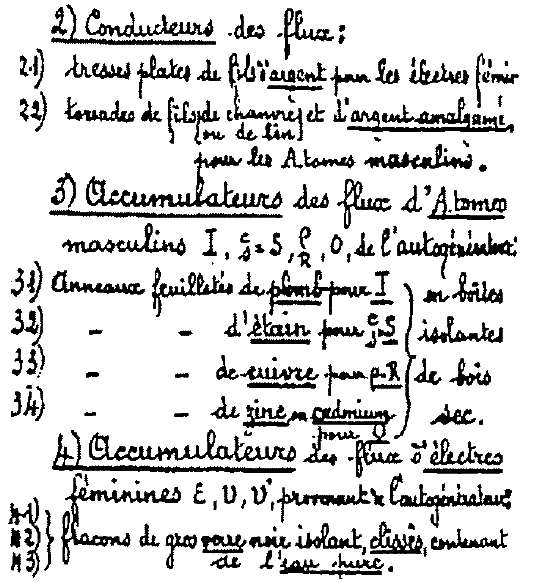 2) Conducteurs des flux:
21) tresses plates de fils d'argent pour les électres fémin
22) torsades de fils de chanvre et d'argent amalgamé,
ou de lin
pour les Atomes masculins.
3) Accumulateurs des flux d'Atomes
masculins I, S, R, O, de l'autogénérateur:
31) Anneaux feuilletés de plomb pour I en boîtes
32) - - d'étain pour S isolantes
33) - - de cuivre pour R de bois
34) - - de zinc ou cadmium sec.
pour O
4) Accumulateurs des flux d'électres
féminines E, U, V, provenant de l'autogénérateur:
41)
42) flacons de gros verre noir isolant, clissés, contenant
43) de l'eau pure.